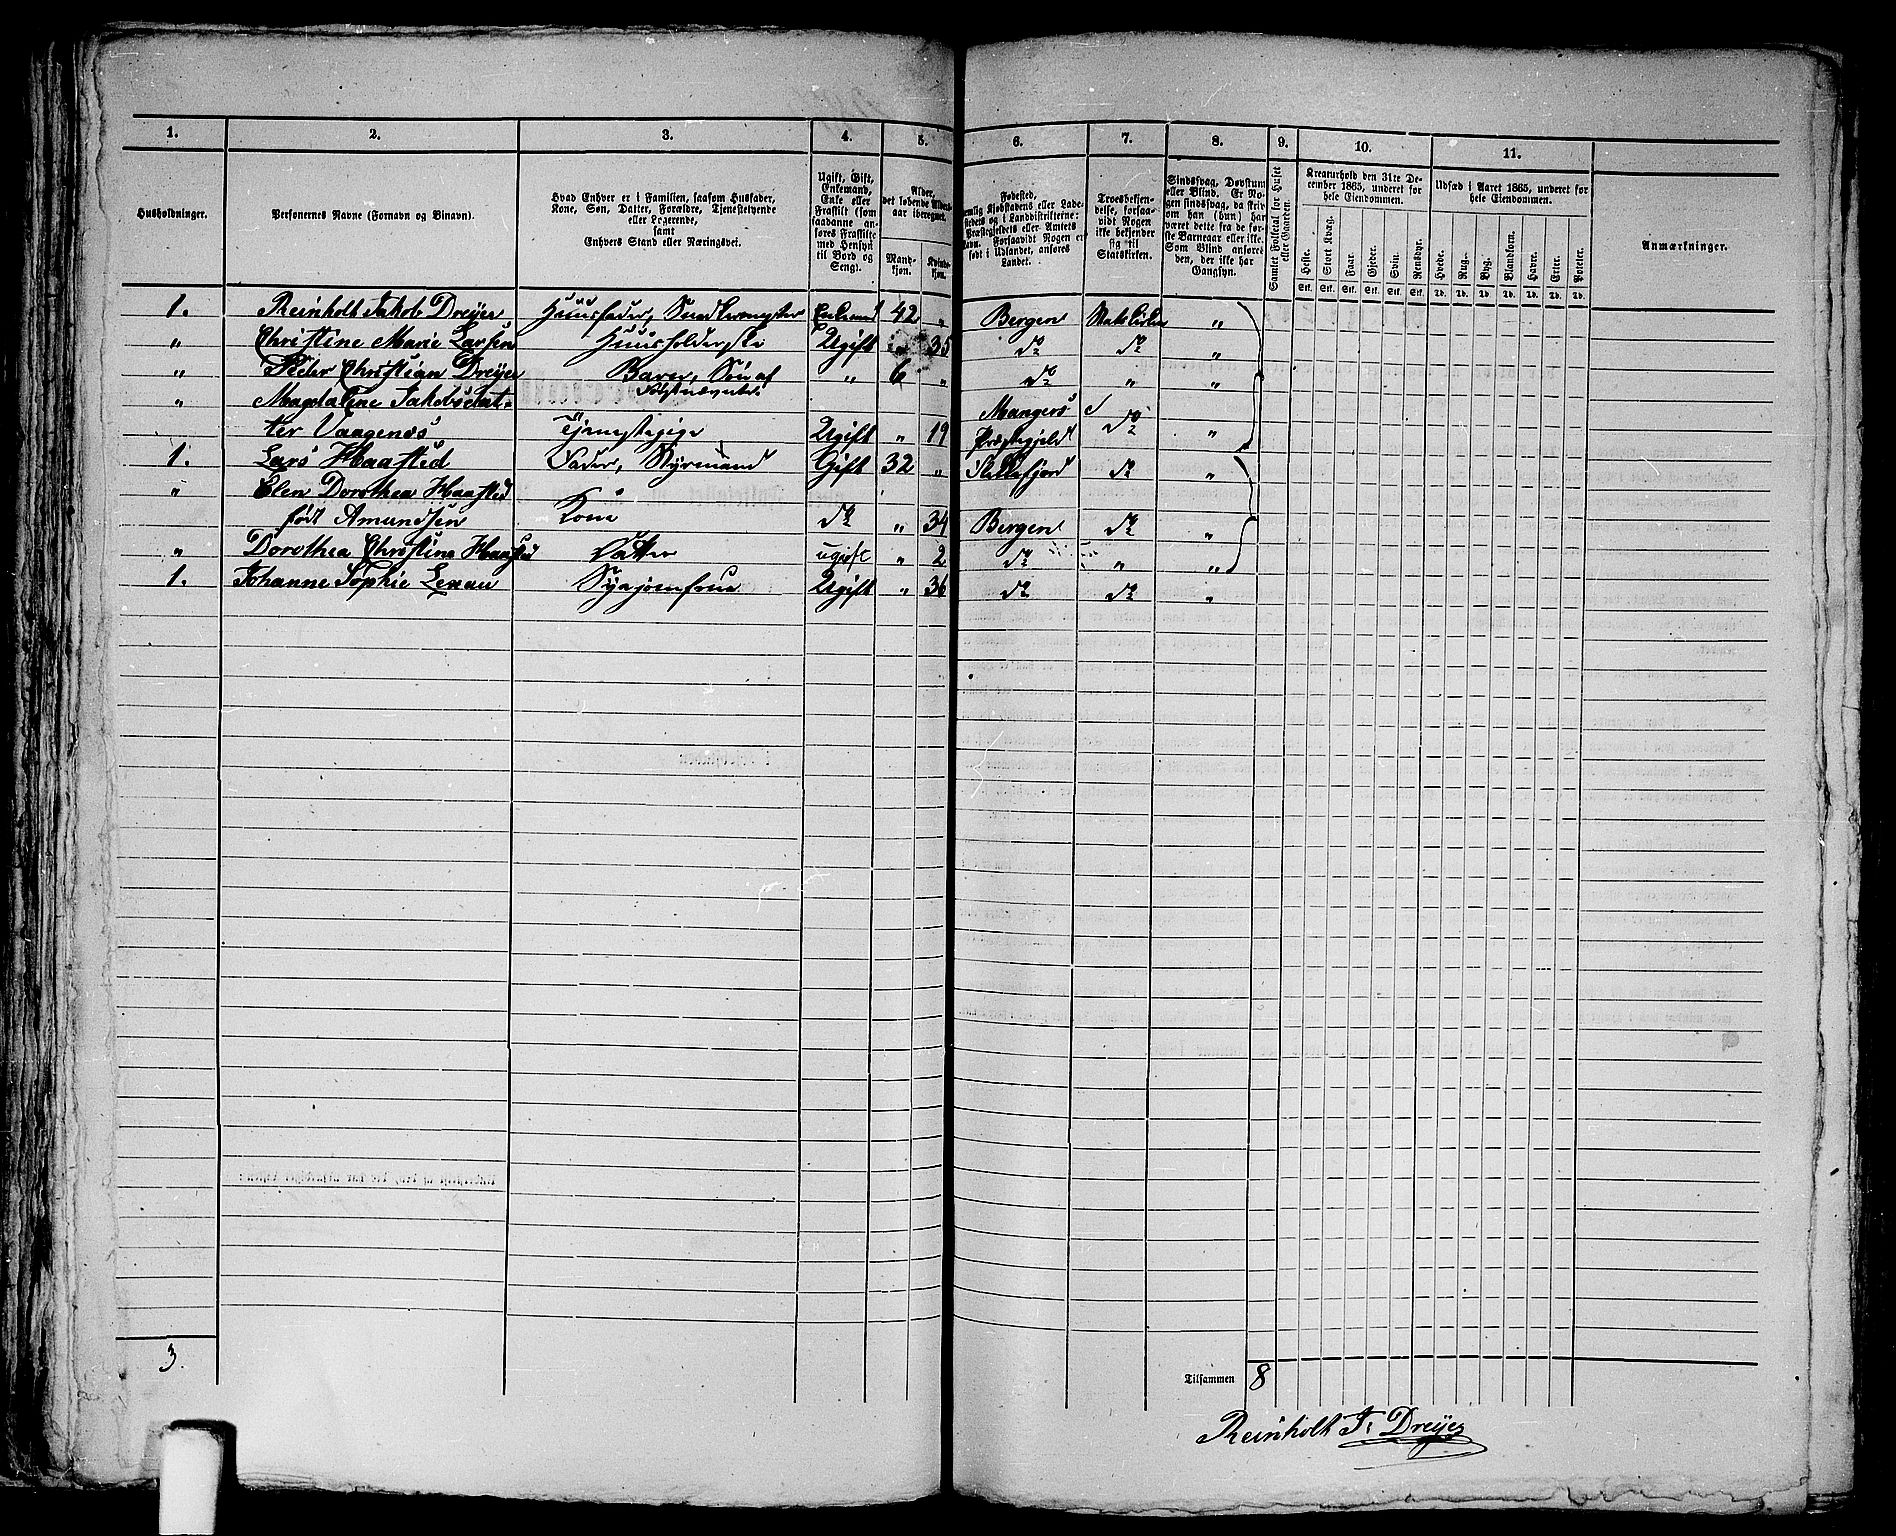 1. 2. 3. 4. 5. 6. 7. 8. 9. 10. 11.
Husholdninger.
Personernes Navne (Fornavn og Binavn).
Hvad Enhver er i Familien, saasom Husfader,
Kone, Søn, Datter, Forældre, Tjenestetyende
eller Logerende,
samt
Enhvers Stand eller Næringsvei.
Ugift, Gift,
Enkemand,
Enke eller
Fraskilt (som
saadanne an-
føres Fraskilte
med Hensyn
til Bord og
Seng).
Alder,
det løbende Alders-
aar iberegnet.
Mand-
kjøn.
Kvinde-
kjøn.
Fødested,
nemlig Kjøbstadens eller Lade-
stedets og i Landdistrikterne:
Præstegjeldets eller Amtets
Navn. Forsaavidt Nogen er
født i Udlandet, anføres
Landet.
Troesbekjen-
delse, forsaa-
vidt Nogen
ikke bekjender
sig til
Statskirken.
Sindssvag, Døvstum
eller Blind. Er No-
gen sindssvag, da skriv
om han (hun) har
været dette fra de før-
ste Barneaar eller ikke.
Som Blind anføres
den, der ikke har
Gangsyn.
Samlet Folketal for Huset
eller Gaarden.
Kreaturhold den 31te De-
cember 1865, underet for
hele Eiendommen.
Heste. Stort Kvæg. Faar. Gjeder. Svin. Rensdyr.
Stk. Stk. Stk. Stk. Stk. Stk.
Udsæd i Aaret 1865, underet for
hele Eiendommen.
Hvede. Rug. Byg. Blandkorn. Havre. Erter. Poteter.
Td. Td. Td. Td. Td. Td. Td.
Anmærkninger.
1. Reinholt Jakob Dreÿer Huusfader, Snedkermester Enkemand 42 „ Bergen Statskirken „
„ Christine Marie Larsen Huusholderske Ugift „ 35 do do „
„ Peder Christian Dreÿer Barn, Søn af 6 „ do „ „
„ Magdalene Jakobsdat- Mangers
ter Vaagenes Tjenestepige Ugift „ 19 Præstegjeld do „
1. Lars Haasted Fader, Styrmand Gift 32 „ do „
„ Elen Dorothea Haasted
født Amundsen Kone do „ 34 Bergen do „
„ Dorothea Christine Haasted Datter ugift „ 2 do „ „
1. Johanne Sophie Lenau Syejomfrue Ugift „ 36 do do „
3.
Tilsammen 8
Reinholt J. Dreÿer